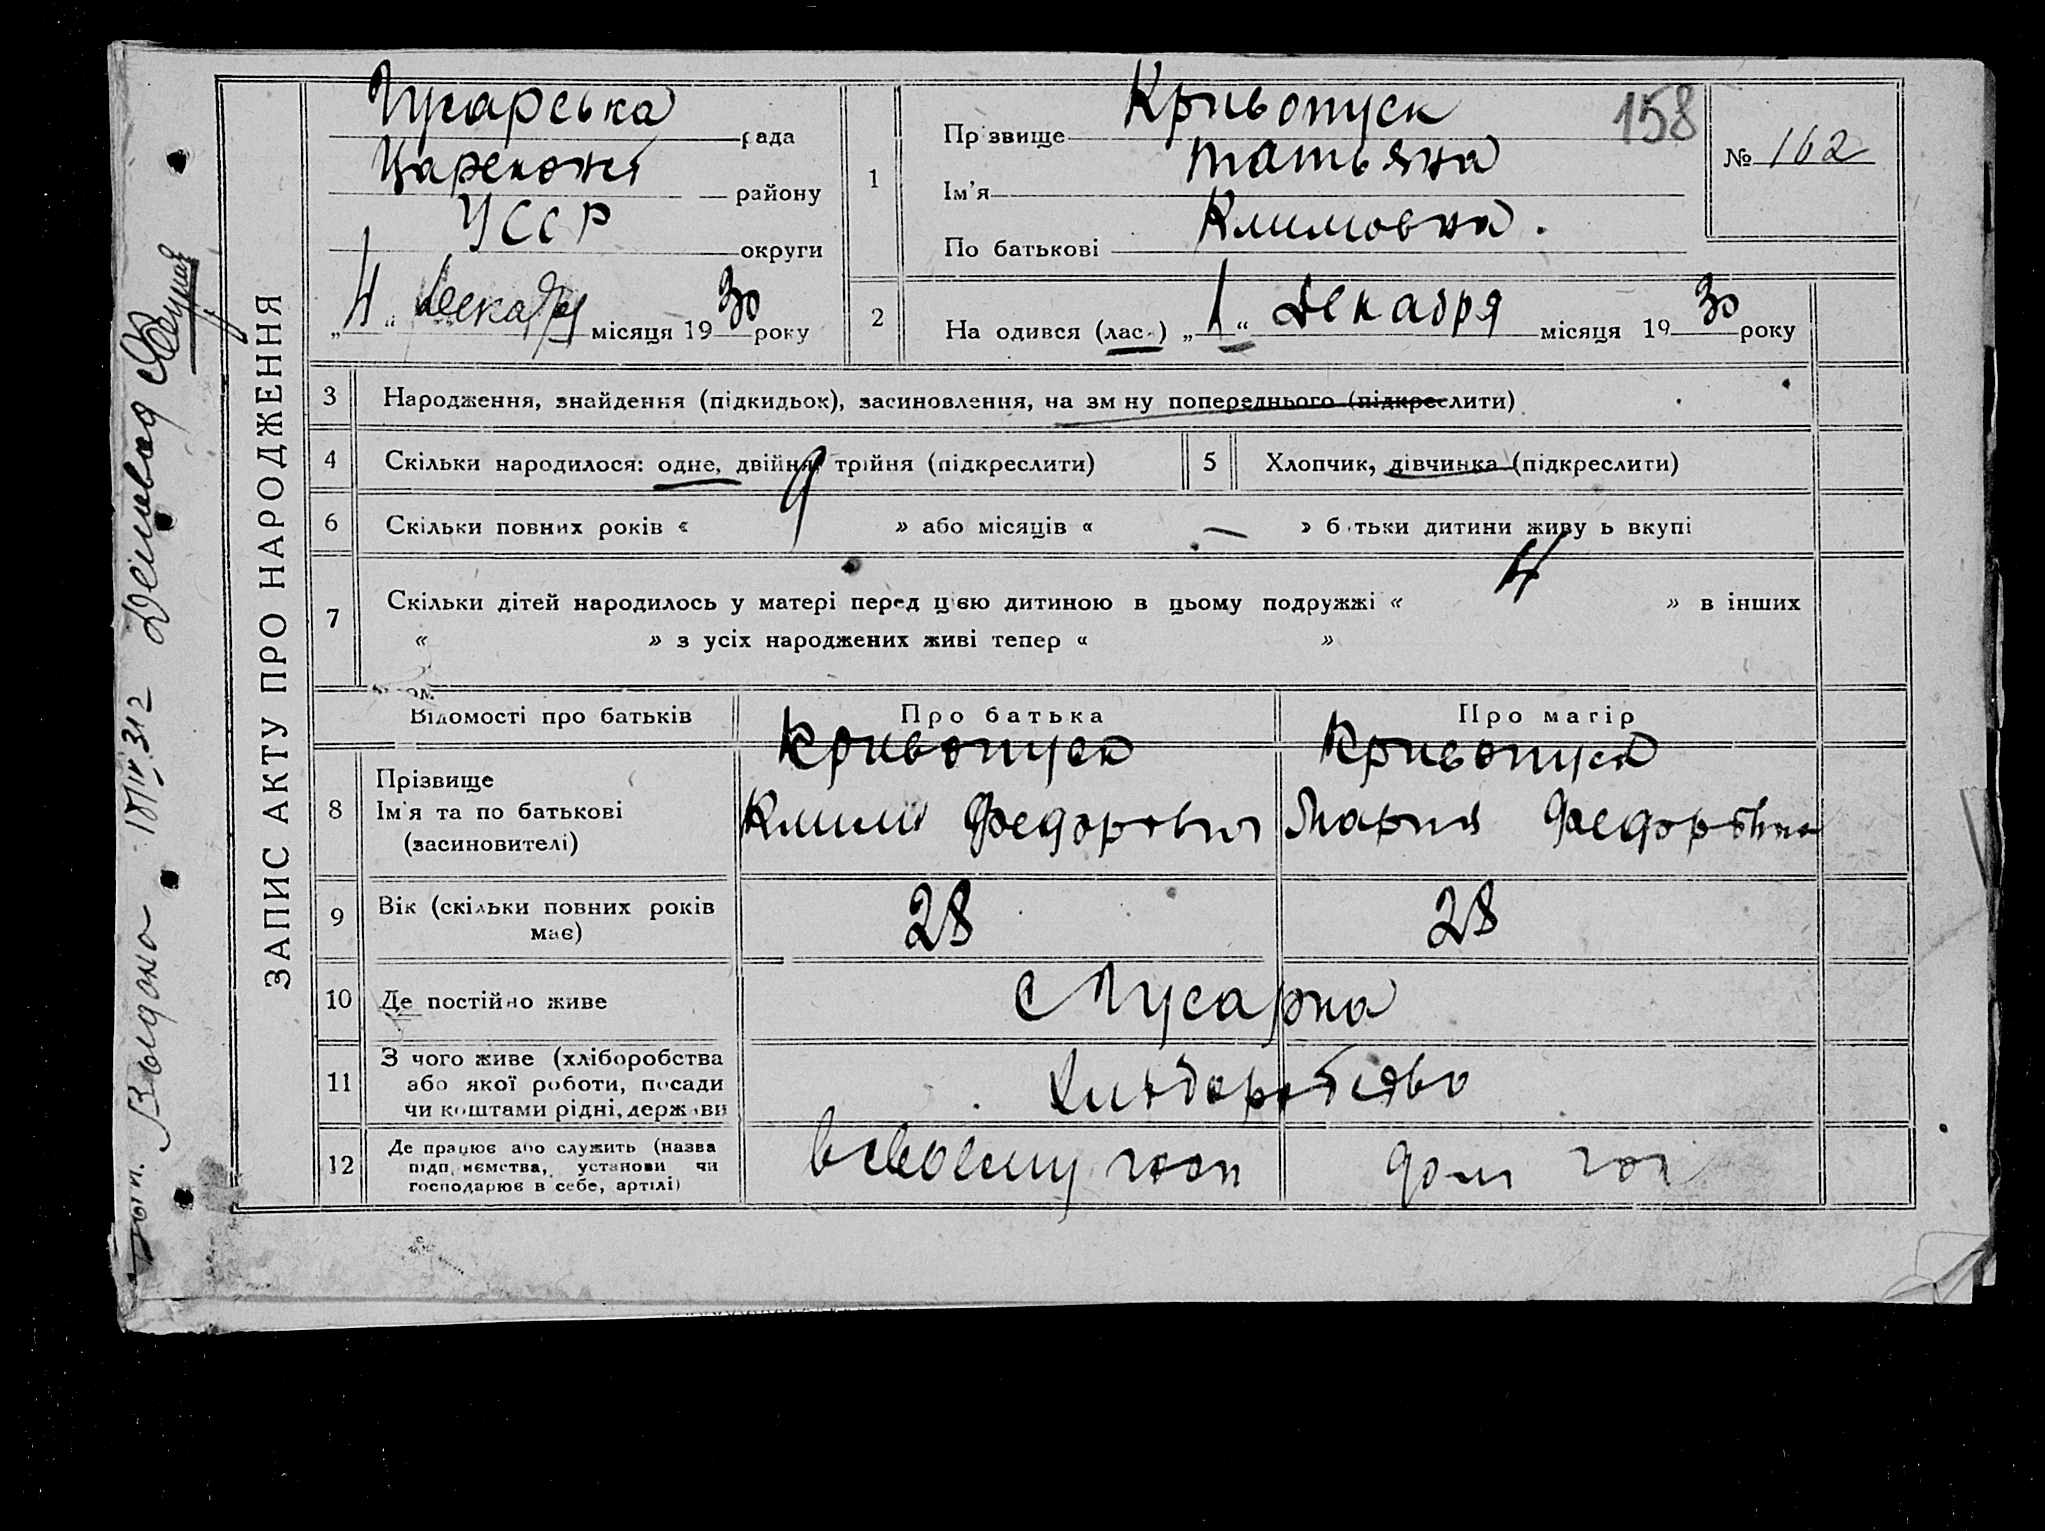 ЗАПИС АКТУ ПРО НАРОДЖЕННЯ
рада
району
УССР округи
„4“ Декабря місяця 1930 року
1
Прізвище Кривопуск
158
Ім'я Татьяна
По батькові Климовна.
№ 162
2
На одився (лас.) „1“ Декабря місяця 1930 року
3 Народження, знайдення (підкидьок), засиновлення, на зм ну попереднього (підкреслити)
4 Скільки народилося: одне, двійня, трійня (підкреслити)
5 Хлопчик, дівчинка (підкреслити)
6 Скільки повних років « 9 » або місяців « — » б тьки дитини живу ь вкупі
7 Скільки дітей народилось у матері перед цією дитиною в цьому подружжі « 4 » в інших
« » з усіх народжених живі тепер « »
Відомості про батьків
Про батька
Про матір
8
Прізвище
Ім'я та по батькові
(засиновителі)
Кривопуск
Клим Федорович
Кривопуск
Мария Федоровна
9
Вік (скільки повних років
має)
28
28
10 Де постійно живе
с Пусарка
11
З чого живе (хліборобства
або якої роботи, посади
чи коштами рідні, держави
12
Де працює або служить (назва
підприємства, установи чи
господарює в себе, артілі)
в своему госп
дом гос
Выдано